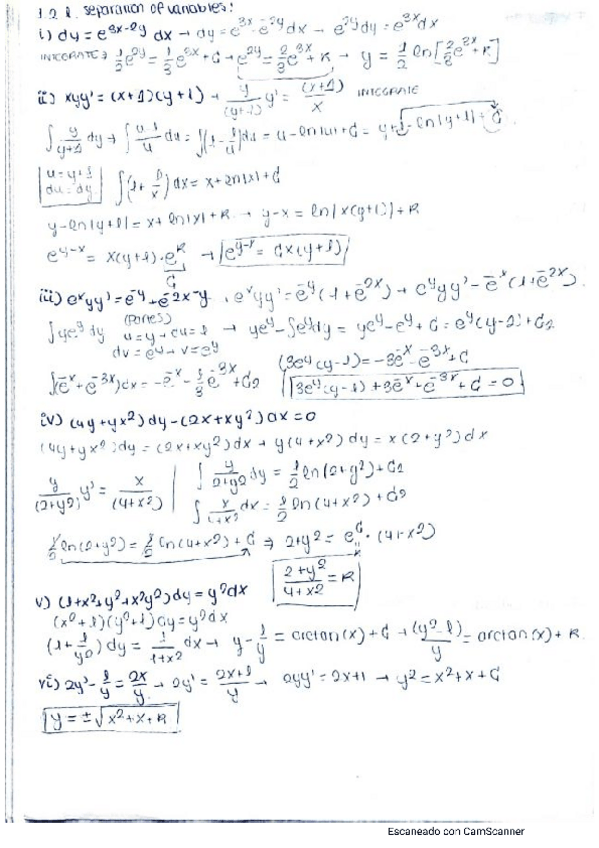 1.2 1. Separation of variables:
i) dy = e^{3x-2y} dx → dy = e^{3x} · e^{-2y} dx → e^{2y} dy = e^{3x} dx
INTEGRATE → 1/2 e^{2y} = 1/3 e^{3x} + C → e^{2y} = 2/3 e^{3x} + K → y = 1/2 ln[2/3 e^{3x} + K]
ii) xyy' = (x+1)(y+1) → y/(y+1) y' = (x+1)/x INTEGRATE
∫ y/(y+1) dy → ∫ (u-1)/u du = ∫(1 - 1/u) du = u - ln|u| + C = y+1 - ln|y+1| + C
u = y+1
du = dy
∫(1 + 1/x) dx = x + ln|x| + C
y - ln|y+1| = x + ln|x| + K → y - x = ln|x(y+1)| + K
e^{y-x} = x(y+1) · e^K → e^{y-x} = Cx(y+1)
C
iii) e^x yy' = e^{-y} + e^{-2x-y}, e^x yy' = e^{-y}(1+e^{-2x}) → e^y yy' = e^{-x}(1+e^{-2x})
(PARTES)
∫ye^y dy u = y → du = 1 → ye^y - ∫e^y dy = ye^y - e^y + C = e^y(y-1) + C_1
dv = e^y → v = e^y
∫(e^{-x} + e^{-3x}) dx = -e^{-x} - 1/3 e^{-3x} + C_2
(3e^y(y-1) = -3e^{-x} - e^{-3x} + C
3e^y(y-1) + 3e^{-x} + e^{-3x} + C = 0
iv) (4y+yx^2) dy - (2x+xy^2) dx = 0
(4y+yx^2) dy = (2x+xy^2) dx → y(4+x^2) dy = x(2+y^2) dx
y/(2+y^2) y' = x/(4+x^2) | ∫ y/(2+y^2) dy = 1/2 ln(2+y^2) + C_1
∫ x/(4+x^2) dx = 1/2 ln(4+x^2) + C_2
1/2 ln(2+y^2) = 1/2 ln(4+x^2) + C ⇒ 2+y^2 = e^C · (4+x^2)
K
(2+y^2)/(4+x^2) = K
v) (1+x^2+y^2+x^2y^2) dy = y^2 dx
(x^2+1)(y^2+1) dy = y^2 dx
(1 + 1/y^2) dy = 1/(1+x^2) dx → y - 1/y = arctan(x) + C → (y^2-1)/y = arctan(x) + K
vi) 2y' - 1/y = 2x/y → 2y' = (2x+1)/y → 2yy' = 2x+1 → y^2 = x^2 + x + C
y = ±√(x^2+x+K)
Escaneado con CamScanner